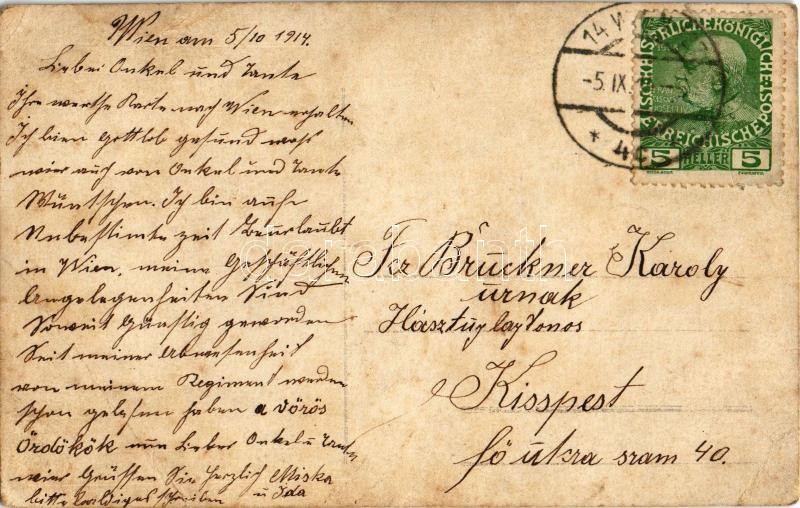 Wien am 5/10 1914.
Liebei Onkel und Tante
Ihre werthe Karte nach Wien erhalten
Ich bien Gottlob gesund was
wier auch von Onkel und Tante
Wüntschen. Ich bin aufs
Unbestimte zeit Beurlaubt
in Wien, meine Geschäftlichen
Angelegenheiten Sind
Soweit Günstig geworden
Seit meiner Abwesenheit
von meinem Regiment werden
schon gelesen haben a vörös
ördökök nun Lieber Onkel u Tante
wier Grüssen Sie Herzlich Miska
bitte baldiges schreiben u Ida
14 W
-5.IX.
* 4
KAISERLICHE KÖNIGLICHE
ÖSTERREICHISCHE POST
5 HELLER 5
Frr Bruckner Károly
úrnak
Hásztúlajdonos
Kisspest
fő útkra szam 40.